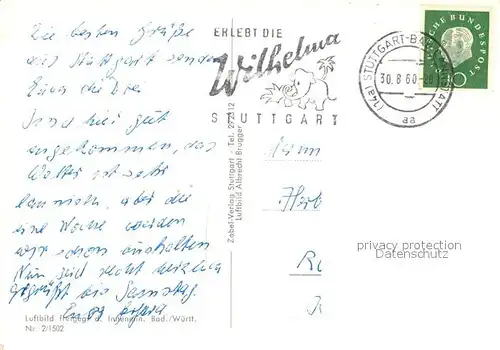 Die besten Grüße
aus Stuttgart senden
Euch die Drei.
Sind hier gut
angekommen, das
Wetter ist sehr
launisch, aber die
eine Woche werden
wir schon aushalten
Nun seid recht herzlich
gegrüßt bis Samstag.
Luftbild freigeg. d. Innenmin. Bad./Württ.
Nr. 2/1502
Zobel-Verlag Stuttgart - Tel.
Luftbild Albrecht Brugger
ERLEBT DIE
Wilhelma
STUTTGART
(14a) STUTTGART-BAD
30.8.60
aa
DEUTSCHE BUNDESPOST
10
privacy protection
Datenschutz